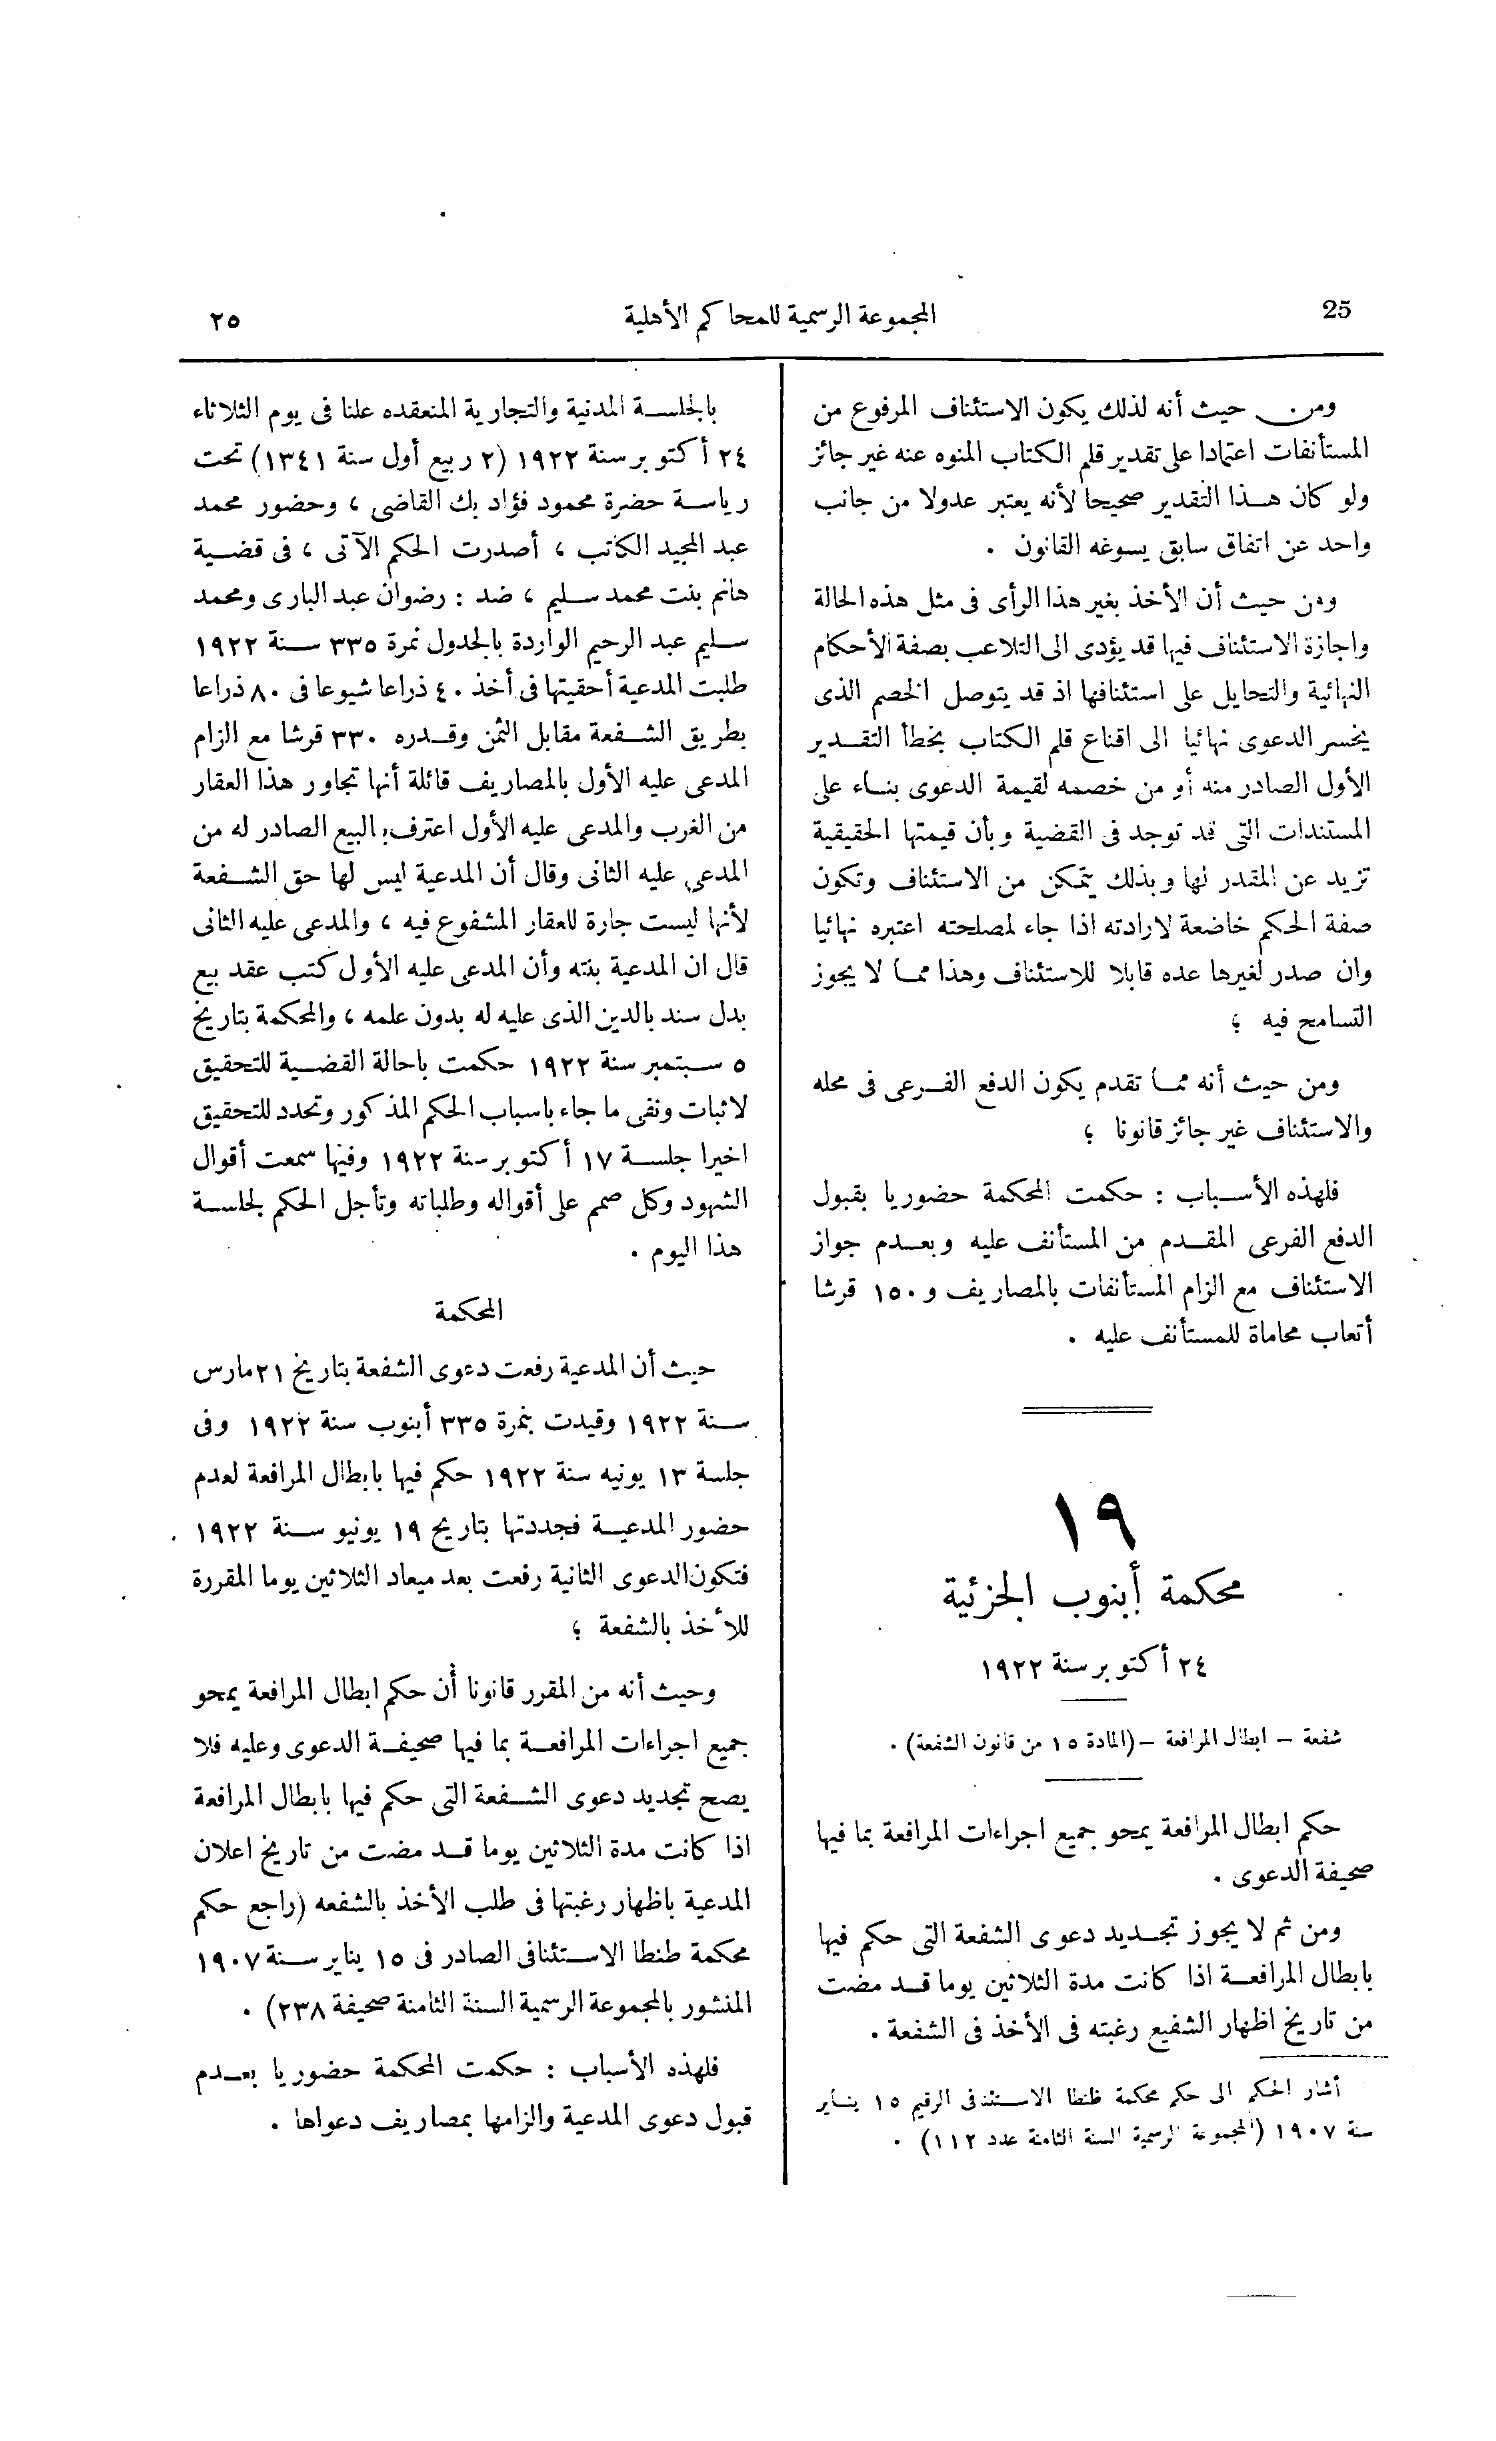 25
المجموعة الرسمية للمحاكم الأهلية
٢٥
ومن حيث أنه لذلك يكون الاستئناف المرفوع من
المستأنفات اعتمادا على تقدير قلم الكتاب المنوه عنه غير جائز
ولو كان هذا التقدير صحيحا لأنه يعتبر عدولا من جانب
واحد عن اتفاق سابق يسوغه القانون .
ومن حيث أن الأخذ بغير هذا الرأى فى مثل هذه الحالة
واجازة الاستئناف فيها قد يؤدى الى التلاعب بصفة الأحكام
النهائية والتحايل على استئنافها اذ قد يتوصل الخصم الذى
يخسر الدعوى نهائيا الى اقناع قلم الكتاب بخطأ التقدير
الأول الصادر منه أو من خصمه لقيمة الدعوى بناء على
المستندات التى قد توجد فى القضية وبأن قيمتها الحقيقية
تزيد عن المقدر لها وبذلك يتمكن من الاستئناف وتكون
صفة الحكم خاضعة لارادته اذا جاء لمصلحته اعتبره نهائيا
وان صدر لغيرها عده قابلا للاستئناف وهذا مما لا يجوز
التسامح فيه ؛
ومن حيث أنه مما تقدم يكون الدفع الفرعى فى محله
والاستئناف غير جائز قانونا ؛
فلهذه الأسباب : حكمت المحكمة حضوريا بقبول
الدفع الفرعى المقدم من المستأنف عليه وبعدم جواز
الاستئناف مع الزام المستأنفات بالمصاريف و ١٥٠ قرشا
أتعاب محاماة للمستأنف عليه .
١٩
محكمة أبنوب الجزئية
٢٤ أكتوبر سنة ١٩٢٢
شفعة – ابطال المرافعة – (المادة ١٥ من قانون الشفعة) .
حكم ابطال المرافعة يمحو جميع اجراءات المرافعة بما فيها
صحيفة الدعوى .
ومن ثم لا يجوز تجديد دعوى الشفعة التى حكم فيها
بابطال المرافعة اذا كانت مدة الثلاثين يوما قد مضت
من تاريخ اظهار الشفيع رغبته فى الأخذ فى الشفعة .
أشار الحكم الى حكم محكمة طنطا الاستئنافى الرقيم ١٥ يناير
سنة ١٩٠٧ (المجموعة الرسمية السنة الثامنة عدد ١١٢) .
بالجلسة المدنية والتجارية المنعقده علنا فى يوم الثلاثاء
٢٤ أكتوبر سنة ١٩٢٢ (٢ ربيع أول سنة ١٣٤١) تحت
رياسة حضرة محمود فؤاد بك القاضى ، وحضور محمد
عبد المجيد الكاتب ، أصدرت الحكم الآتى ، فى قضية
هانم بنت محمد سليم ، ضد : رضوان عبد البارى ومحمد
سليم عبد الرحيم الواردة بالجدول نمرة ٣٣٥ سنة ١٩٢٢
طلبت المدعية أحقيتها فى أخذ ٤٠ ذراعا شيوعا فى ٨٠ ذراعا
بطريق الشفعة مقابل الثمن وقدره ٣٣٠ قرشا مع الزام
المدعى عليه الأول بالمصاريف قائلة أنها تجاور هذا العقار
من الغرب والمدعى عليه الأول اعترف بالبيع الصادر له من
المدعى عليه الثانى وقال أن المدعية ليس لها حق الشفعة
لأنها ليست جارة للعقار المشفوع فيه ، والمدعى عليه الثانى
قال ان المدعية بنته وأن المدعى عليه الأول كتب عقد بيع
بدل سند بالدين الذى عليه له بدون علمه ، والمحكمة بتاريخ
٥ سبتمبر سنة ١٩٢٢ حكمت باحالة القضية للتحقيق
لاثبات ونفى ما جاء باسباب الحكم المذكور وتحدد للتحقيق
اخيرا جلسة ١٧ أكتوبر سنة ١٩٢٢ وفيها سمعت أقوال
الشهود وكل صمم على أقواله وطلباته وتأجل الحكم لجلسة
هذا اليوم .
المحكمة
حيث أن المدعية رفعت دعوى الشفعة بتاريخ ٢١ مارس
سنة ١٩٢٢ وقيدت بنمرة ٣٣٥ أبنوب سنة ١٩٢٢ وفى
جلسة ١٣ يونيه سنة ١٩٢٢ حكم فيها بابطال المرافعة لعدم
حضور المدعية فجددتها بتاريخ ١٩ يونيو سنة ١٩٢٢
فتكون الدعوى الثانية رفعت بعد ميعاد الثلاثين يوما المقررة
للأخذ بالشفعة ؛
وحيث أنه من المقرر قانونا أن حكم ابطال المرافعة يمحو
جميع اجراءات المرافعة بما فيها صحيفة الدعوى وعليه فلا
يصح تجديد دعوى الشفعة التى حكم فيها بابطال المرافعة
اذا كانت مدة الثلاثين يوما قد مضت من تاريخ اعلان
المدعية باظهار رغبتها فى طلب الأخذ بالشفعه (راجع حكم
محكمة طنطا الاستئنافى الصادر فى ١٥ يناير سنة ١٩٠٧
المنشور بالمجموعة الرسمية السنة الثامنة صحيفة ٢٣٨) .
فلهذه الأسباب : حكمت المحكمة حضوريا بعدم
قبول دعوى المدعية والزامها بمصاريف دعواها .